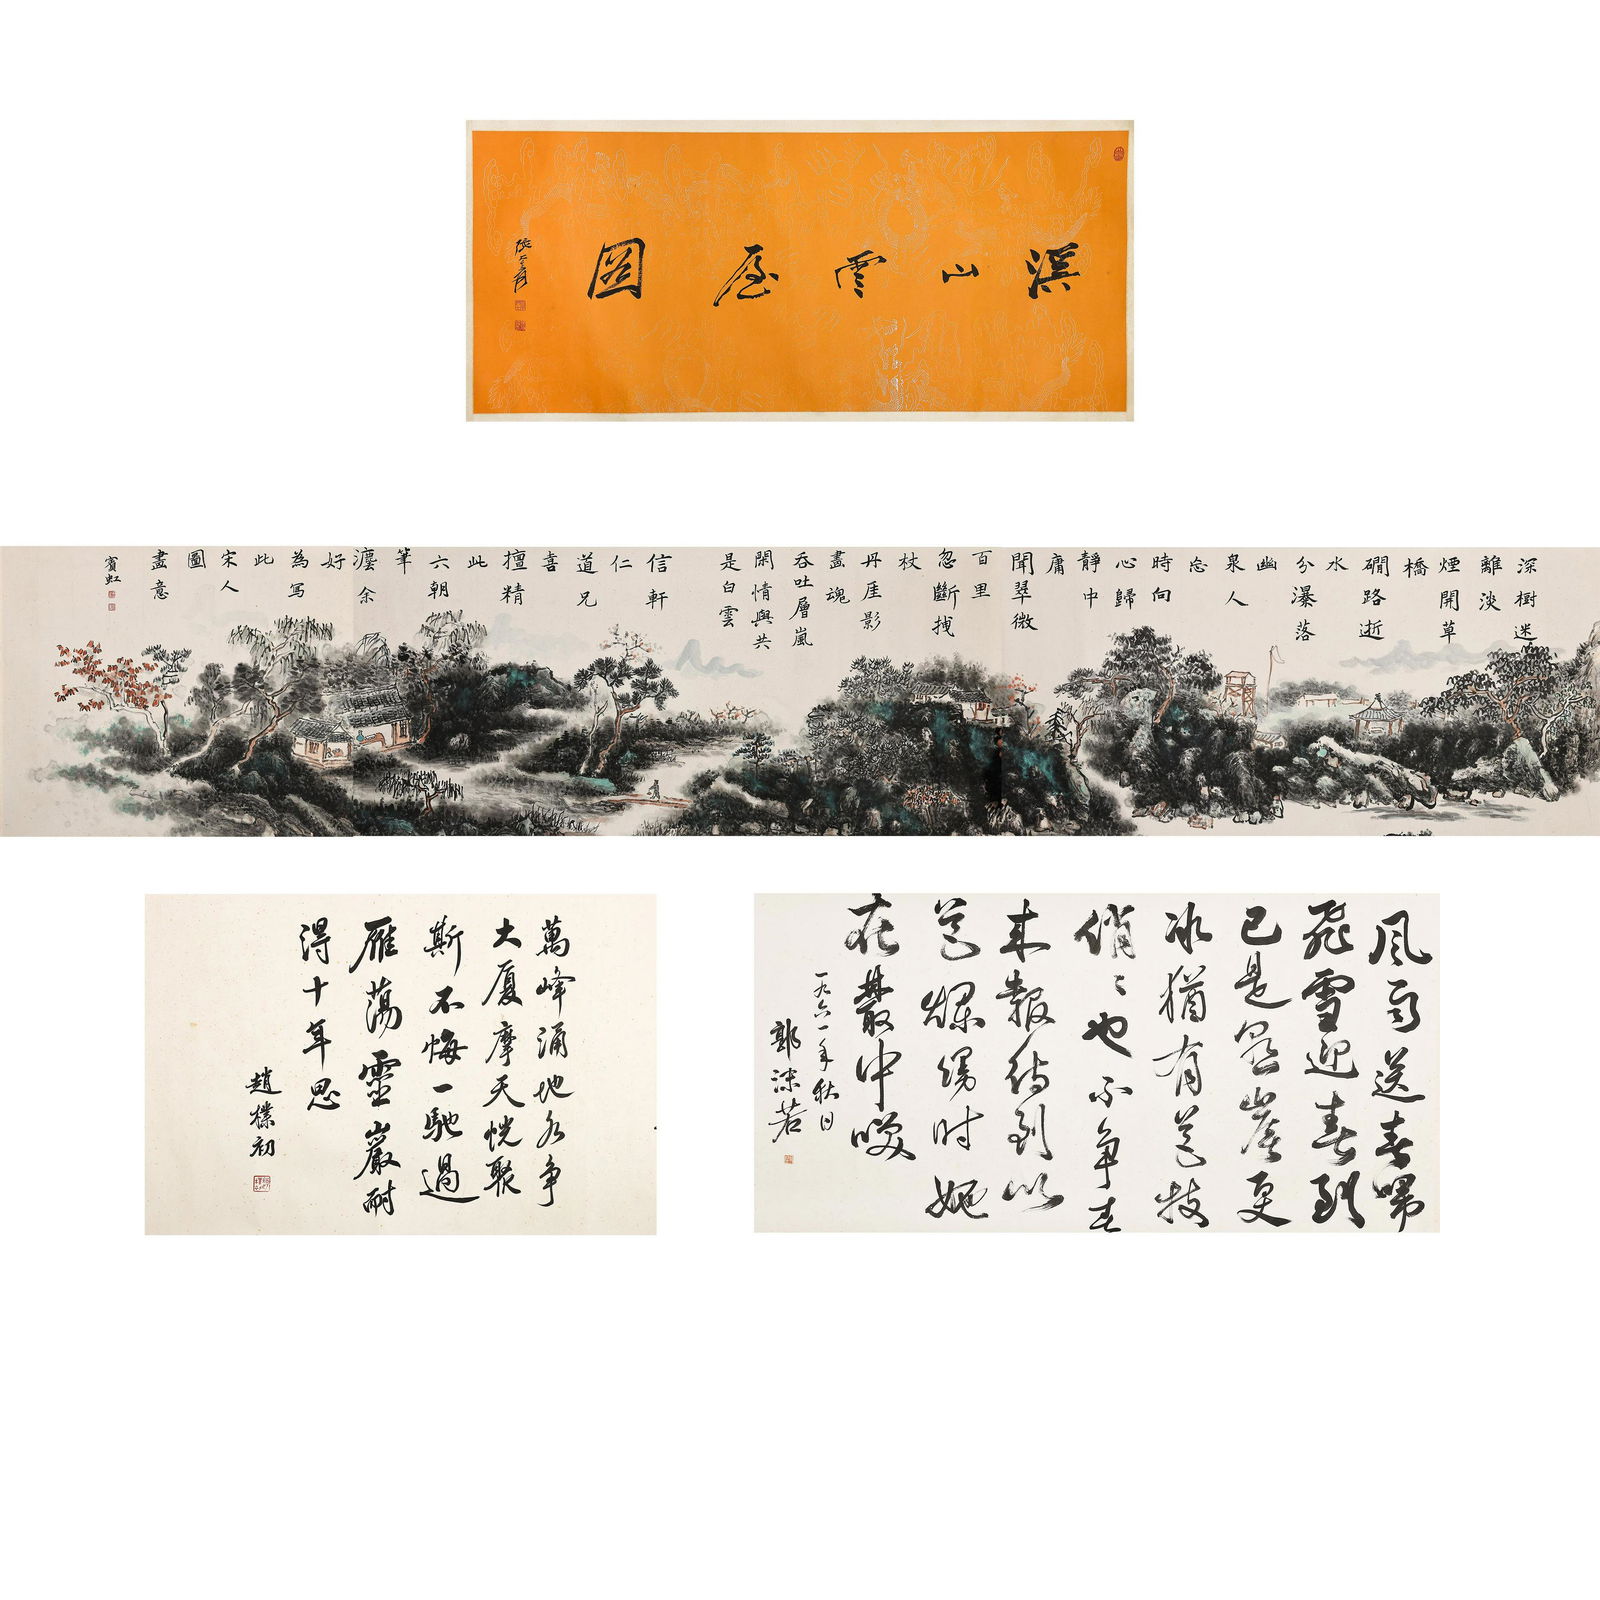 溪山雲屋圖
張大千
深樹迷
離淡
煙開草
橋
磵路逝
水
分瀑落
幽
泉人
忘
時向
心歸
靜中
庸
聞翠微
百里
忽斷拽
杖
丹厓影
畫魂
吞吐層嵐
閑情與共
是白雲
信軒
仁
道兄
喜
擅精
此
六朝
筆
灋余
好
為寫
此
宋人
圖
畫意
賓虹
風雨送春歸
飛雪迎春到
已是懸崖更
冰猶有花枝
俏〻也不争春
来報待到山
花爛熳時她
在叢中咲
一九六一年秋日
郭沫若
萬峰涌地争
大厦摩天恍聚
斯不悔一馳過
雁蕩靈巖耐
得十年思
趙樸初